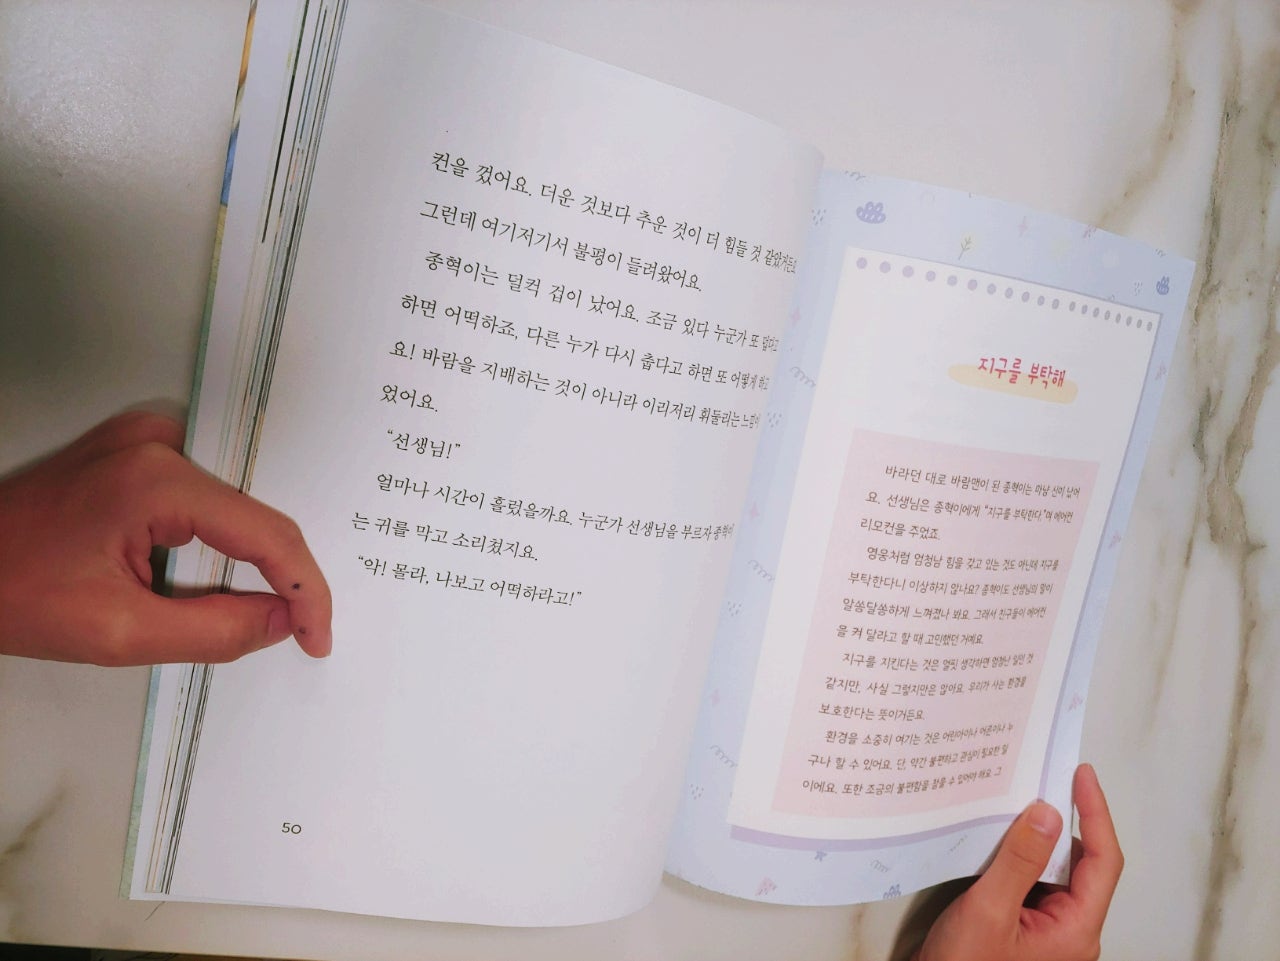 컨을 껐어요. 더운 것보다 추운 것이 더 힘들 것 같았거든요
그런데 여기저기서 불평이 들려왔어요.
종혁이는 덜컥 겁이 났어요. 조금 있다 누군가 또 덥다고
하면 어떡하죠, 다른 누가 다시 춥다고 하면 또 어떻게 하고
요! 바람을 지배하는 것이 아니라 이리저리 휘둘리는 느낌이
었어요.
“선생님!”
얼마나 시간이 흘렀을까요. 누군가 선생님을 부르자 종혁이
는 귀를 막고 소리쳤지요.
“악! 몰라, 나보고 어떡하라고!”
50
지구를 부탁해
바라던 대로 바람맨이 된 종혁이는 마냥 신이 났어
요. 선생님은 종혁이에게 “지구를 부탁한다.”며 에어컨
리모컨을 주었죠.
영웅처럼 엄청난 힘을 갖고 있는 것도 아닌데 지구를
부탁한다니 이상하지 않나요? 종혁이도 선생님의 말이
알쏭달쏭하게 느껴졌나 봐요. 그래서 친구들이 에어컨
을 켜 달라고 할 때 고민했던 거예요.
지구를 지킨다는 것은 얼핏 생각하면 엄청난 일인 것
같지만, 사실 그렇지만은 않아요. 우리가 사는 환경을
보호한다는 뜻이거든요.
환경을 소중히 여기는 것은 어린아이나 어른이나 누
구나 할 수 있어요. 단, 약간 불편하고 관심이 필요한 일
이에요. 또한 조금의 불편함을 참을 수 있어야 해요. 그